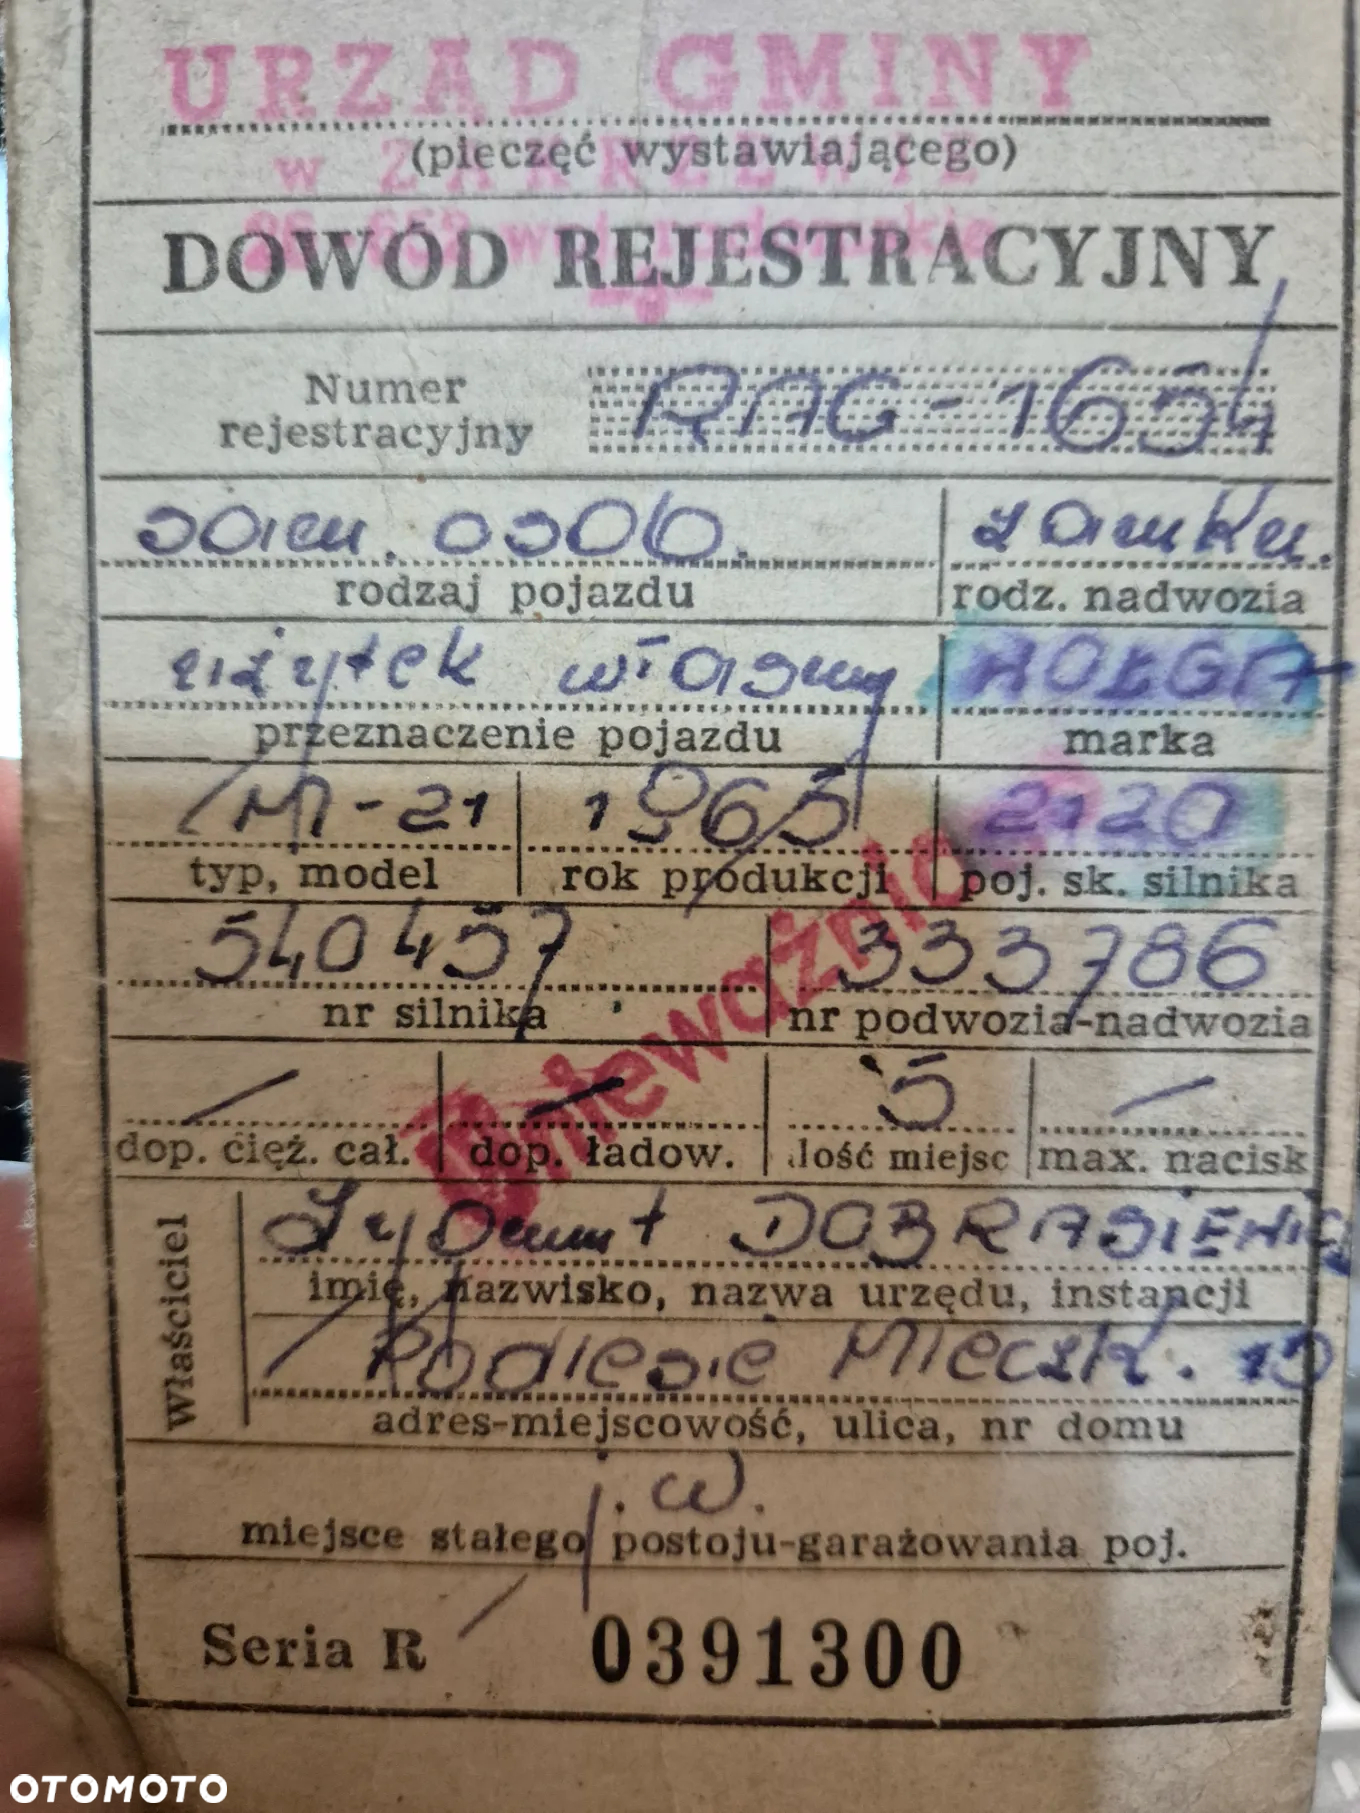 URZĄD GMINY
(pieczęć wystawiającego)
w ZAKRZEWIE
DOWÓD REJESTRACYJNY
Numer
rejestracyjny
RAG-1654
sam. osob.
zamkn.
rodzaj pojazdu
rodz. nadwozia
użytek własny
WOŁGA
przeznaczenie pojazdu
marka
M-21
1965
2120
typ, model
rok produkcji
poj. sk. silnika
540457
333786
nr silnika
nr podwozia-nadwozia
Unieważniono
5
dop. cięż. cał.
dop. ładow.
ilość miejsc
max. nacisk
właściciel
Zygmunt
imię, nazwisko, nazwa urzędu, instancji
Podlesie Mleczk.
adres-miejscowość, ulica, nr domu
j.w.
miejsce stałego postoju-garażowania poj.
Seria R 0391300
OTOMOTO